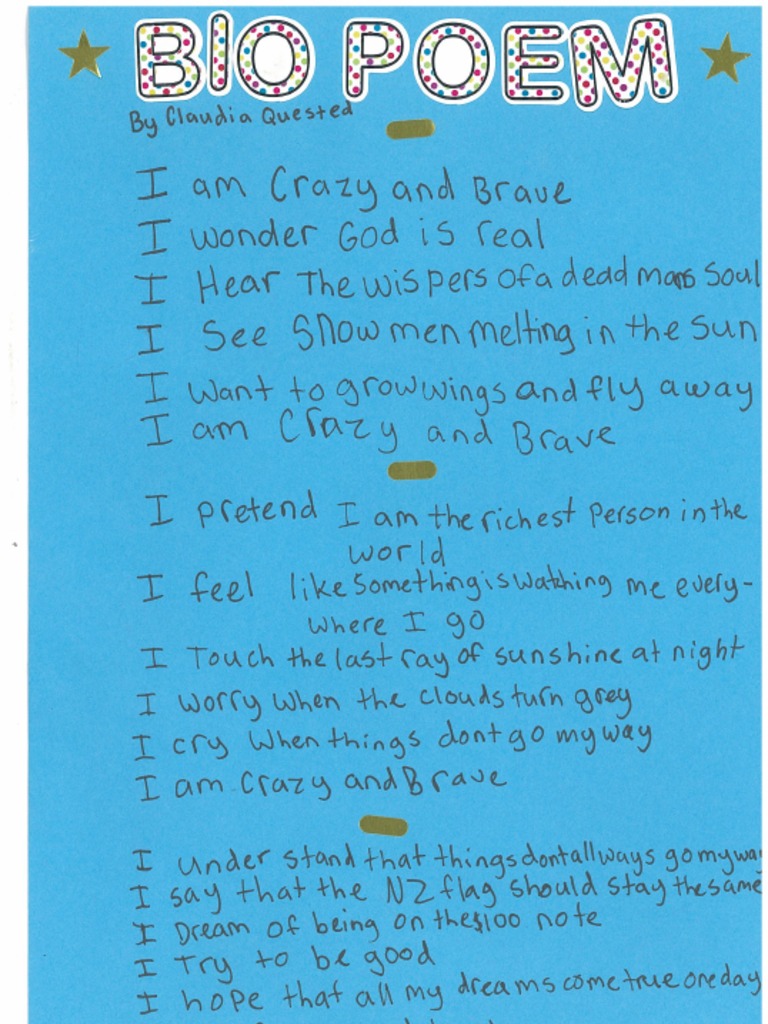 BIO POEM
By Claudia Quested
I am Crazy and Brave
I wonder God is real
I Hear The wispers of a dead mans Soul
I See Snowmen melting in the sun
I want to grow wings and fly away
I am Crazy and Brave
I pretend I am the richest person in the
world
I feel like something is watching me every-
where I go
I Touch the last ray of sunshine at night
I worry when the clouds turn grey
I cry when things dont go my way
I am Crazy and Brave
I under stand that things dont allways go my way
I say that the NZ flag should stay the same
I Dream of being on the $100 note
I Try to be good
I hope that all my dreams come true one day